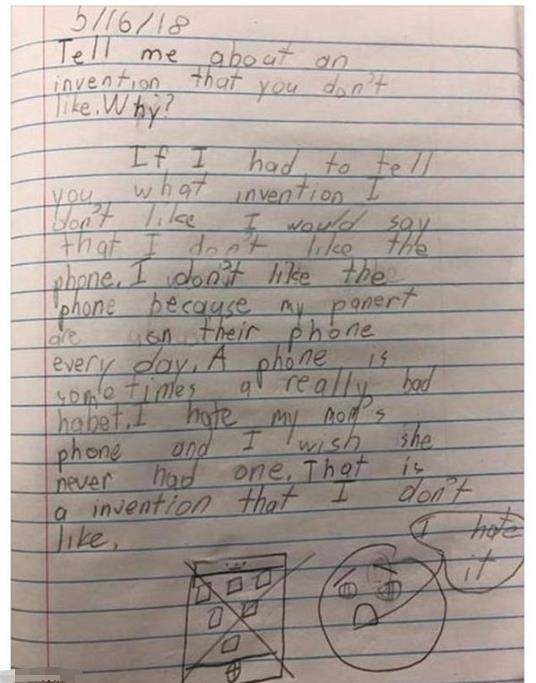 5/16/18
Tell me about an
invention that you don't
like. Why?
If I had to tell
you what invention I
don't like I would say
that I don't like the
phone. I don't like the
phone because my panert
are on their phone
every day. A phone is
some times a really bad
habet. I hate my mom's
phone and I wish she
never had one. That is
a invention that I don't
like.
I hate
it